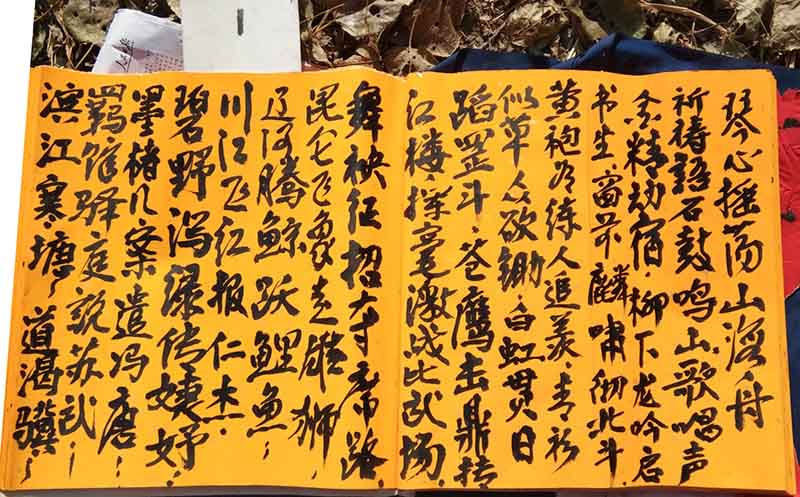 琴心摇荡山海舟
祈祷石鼓鸣山歌唱声
金精动宿柳下龙吟启
书生窗前麟啸彻北斗
黄袍练人追羡青衫
似草人欲锄白虹贯日
蹈罡斗苍鹰击鼎抟
江楼挥毫激战比武场
舞袂征招席路
昆仑飞象走雄狮
辽河腾鲸跃鲤鱼
川江飞红报仁杰
碧野泻渌传婕妤
墨楮几案遣冯唐
羁馆驿庭说苏武
滨江寒塘道渴骥